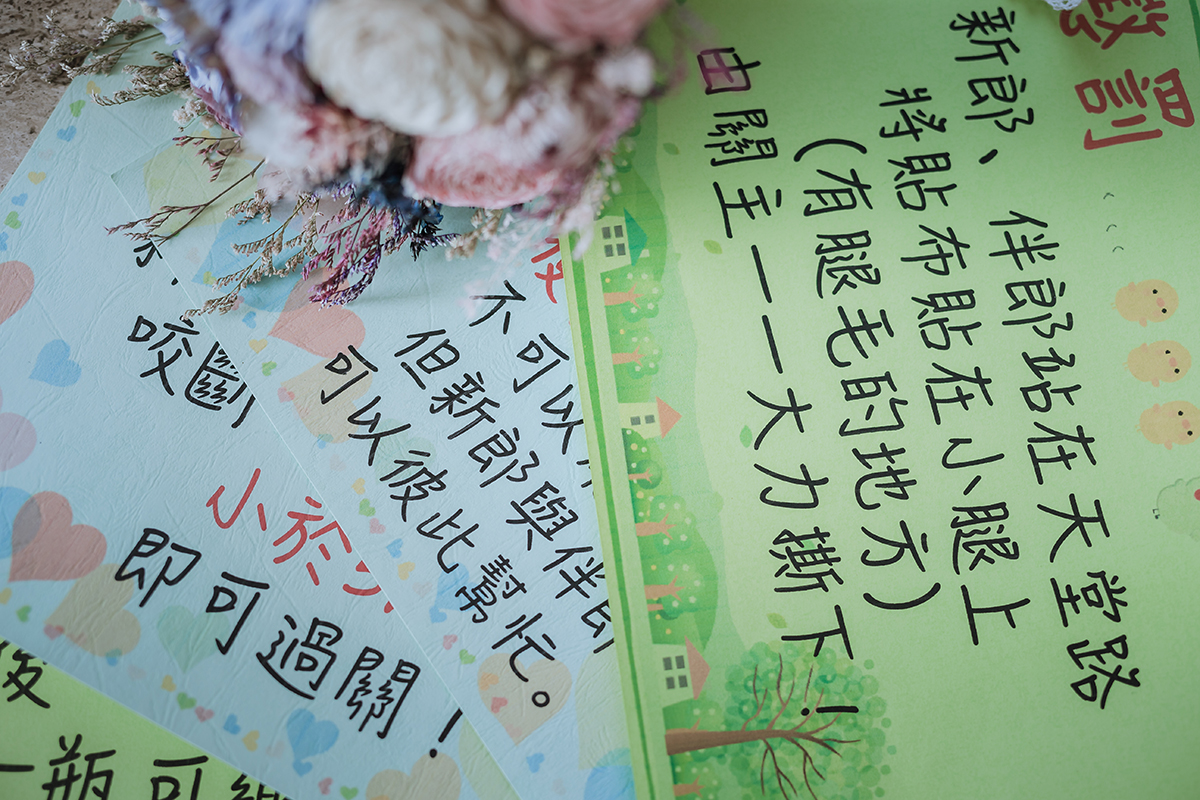 懲罰
新郎、伴郎站在天堂路
將貼布貼在小腿上
(有腿毛的地方)
由關主一一大力撕下!
不可以
但新郎與伴郎
可以彼此幫忙。
咬斷,
小於
即可過關!
後
一瓶可